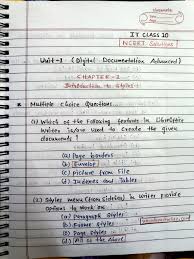 IT CLASS 10
NCERT Solutions
Unit-1 (Digital Documentation Advanced)
CHAPTER-1
Introduction to Styles
Multiple Choice Questions...
(a) Which of the following features in LibreOffice
Writer is/are used to Create the given
documents?
(a) Page borders
(b) Envelop
(c) Picture from File
(d) Indexes and Tables
(2) Styles menu (from sidebar) in Writer provide
options to Work on
(a) Paragraph Styles
(b) Frame Styles
(c) Page Styles
(d) All of the above